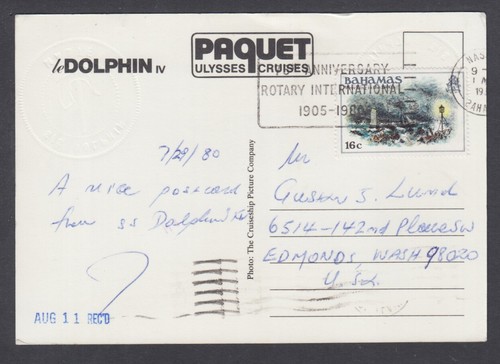 le DOLPHIN IV
PAQUET
ULYSSES CRUISES
ANNIVERSARY
ROTARY INTERNATIONAL
1905-1980
BAHAMAS
16c
NAS
9
7/29/80
A nice postcard
from SS Dolphin IV
Photo: The Cruiseship Picture Company
Mr
Gustav S. Lund
6514-142nd Place SW
EDMONDS, WASH 98020
USA
AUG 11 REC'D